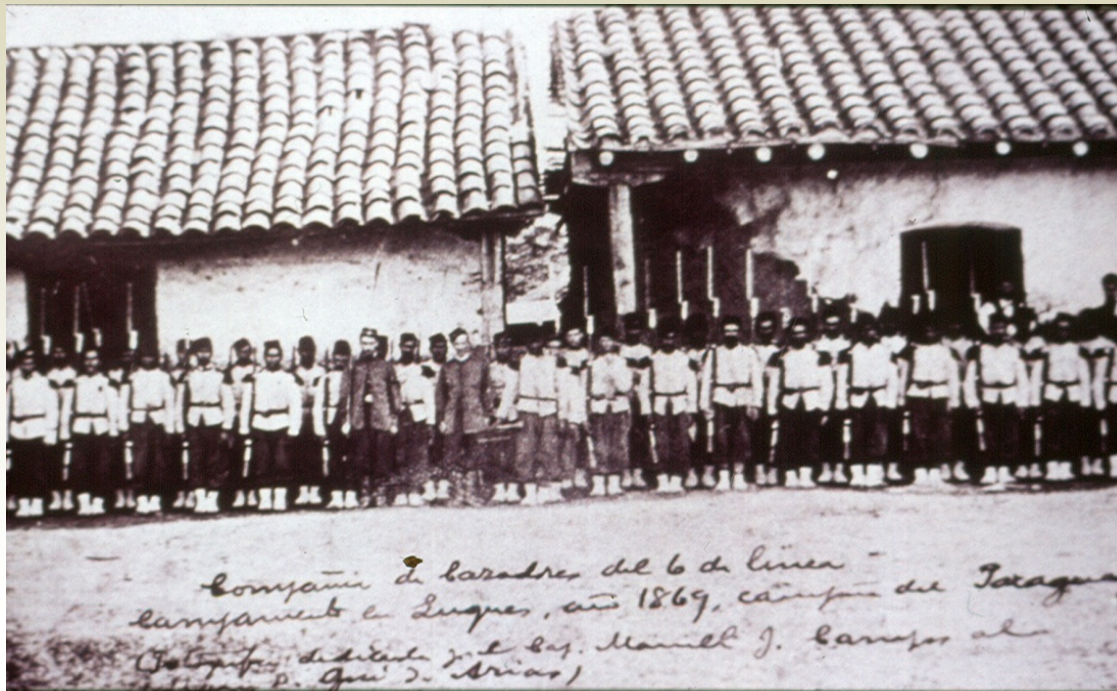 Compañia de Cazadores del 6 de linea -
Campamento en Luques, año 1869, campaña del Paraguay
(Fotografia dedicada por el Cap. Manuel J. Campos al
José I. Arias)